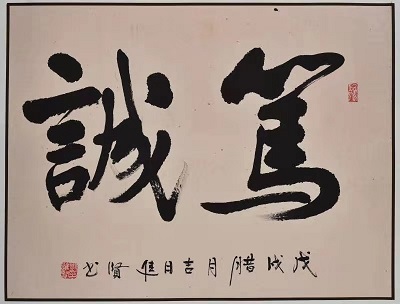 篤誠
戊戌腊月吉日賢书